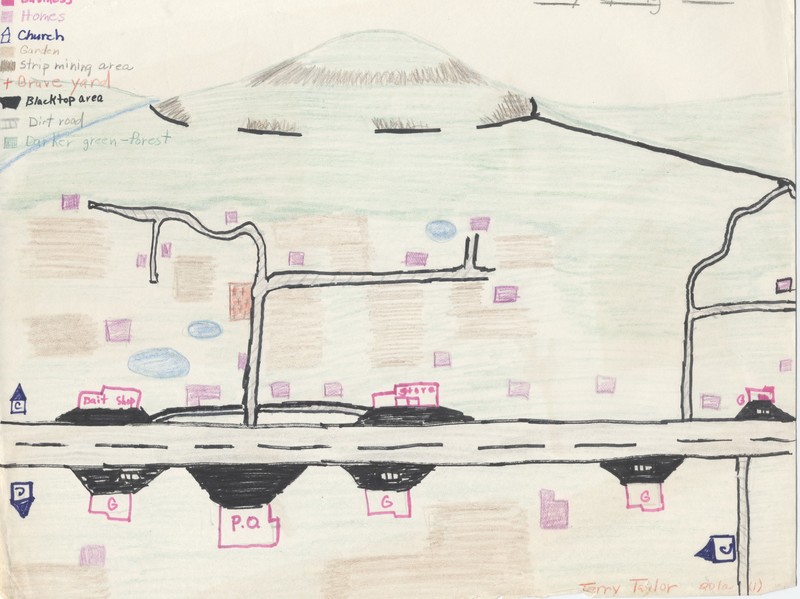 Business
Homes
Church
Garden
Strip mining area
+ Grave yard
Blacktop area
Dirt road
Darker green-Forest
Bait Shop
Store
C
G
G
G
G
P.O.
C
Terry Taylor